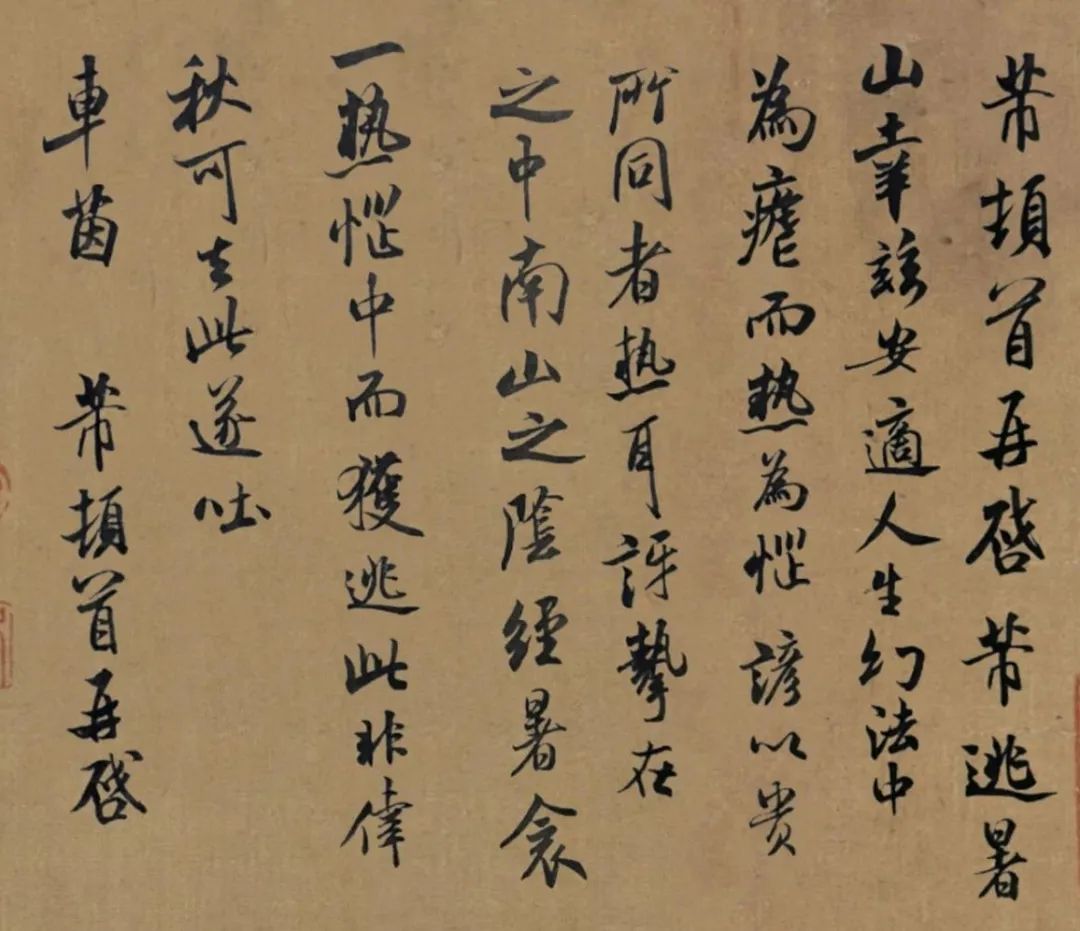 芾頓首再啓芾逃暑
山幸兹安適人生幻法中
為瘧而熱為惱諺以貴
所同者熱耳訝挈在
之中南山之陰經暑衾
一熱惱中而獲逃此非倖
秋可去此遂吐
車茵 芾頓首再啓